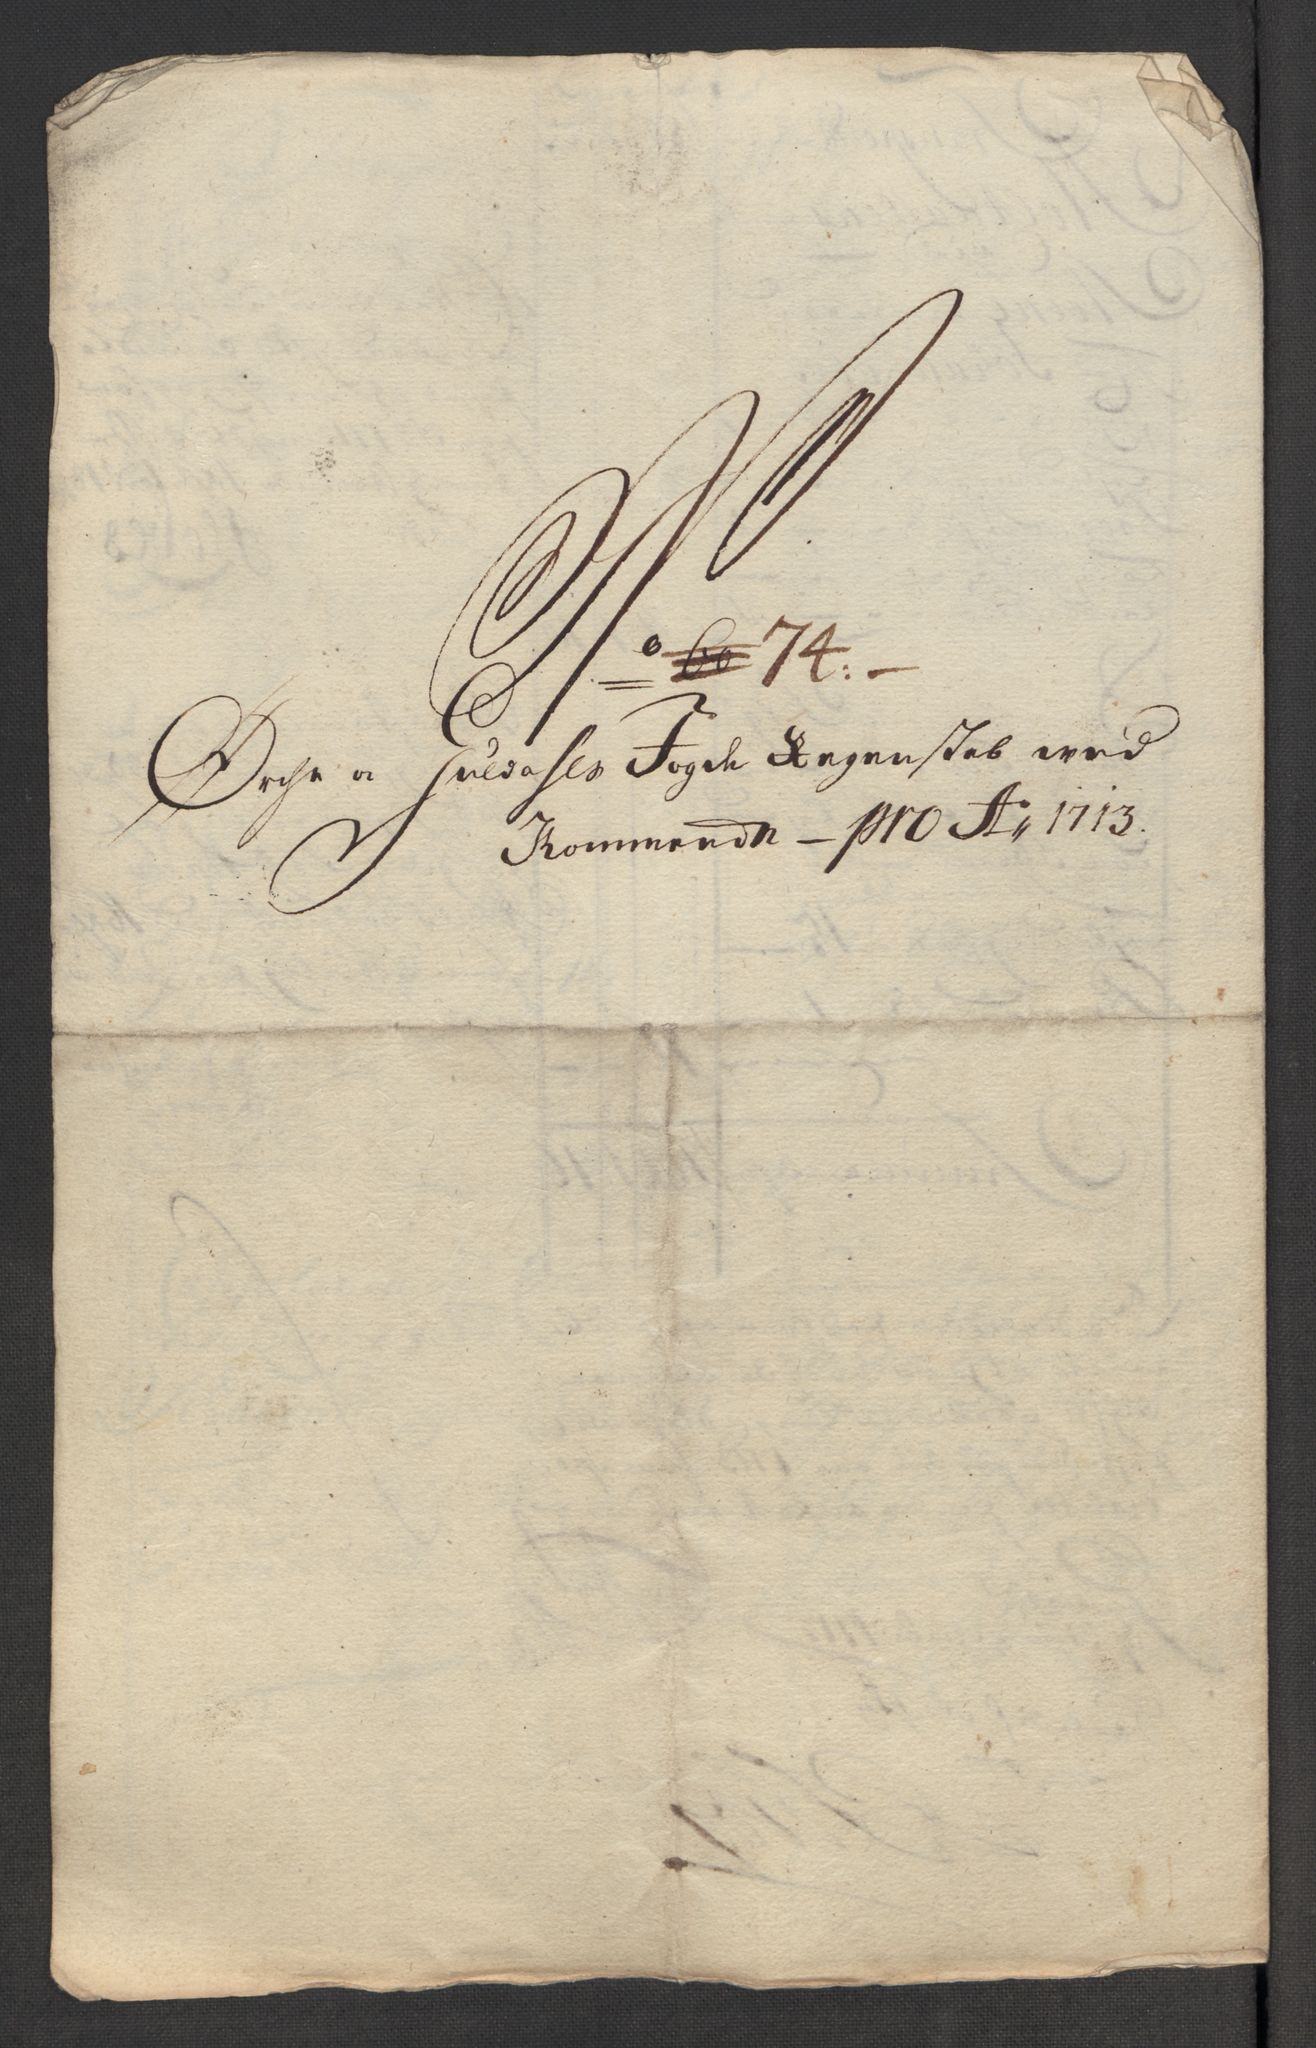 No 60 74:-
Orche og Guldahls Fogde Regenskab wed
Kommende - pro Ao 1713.